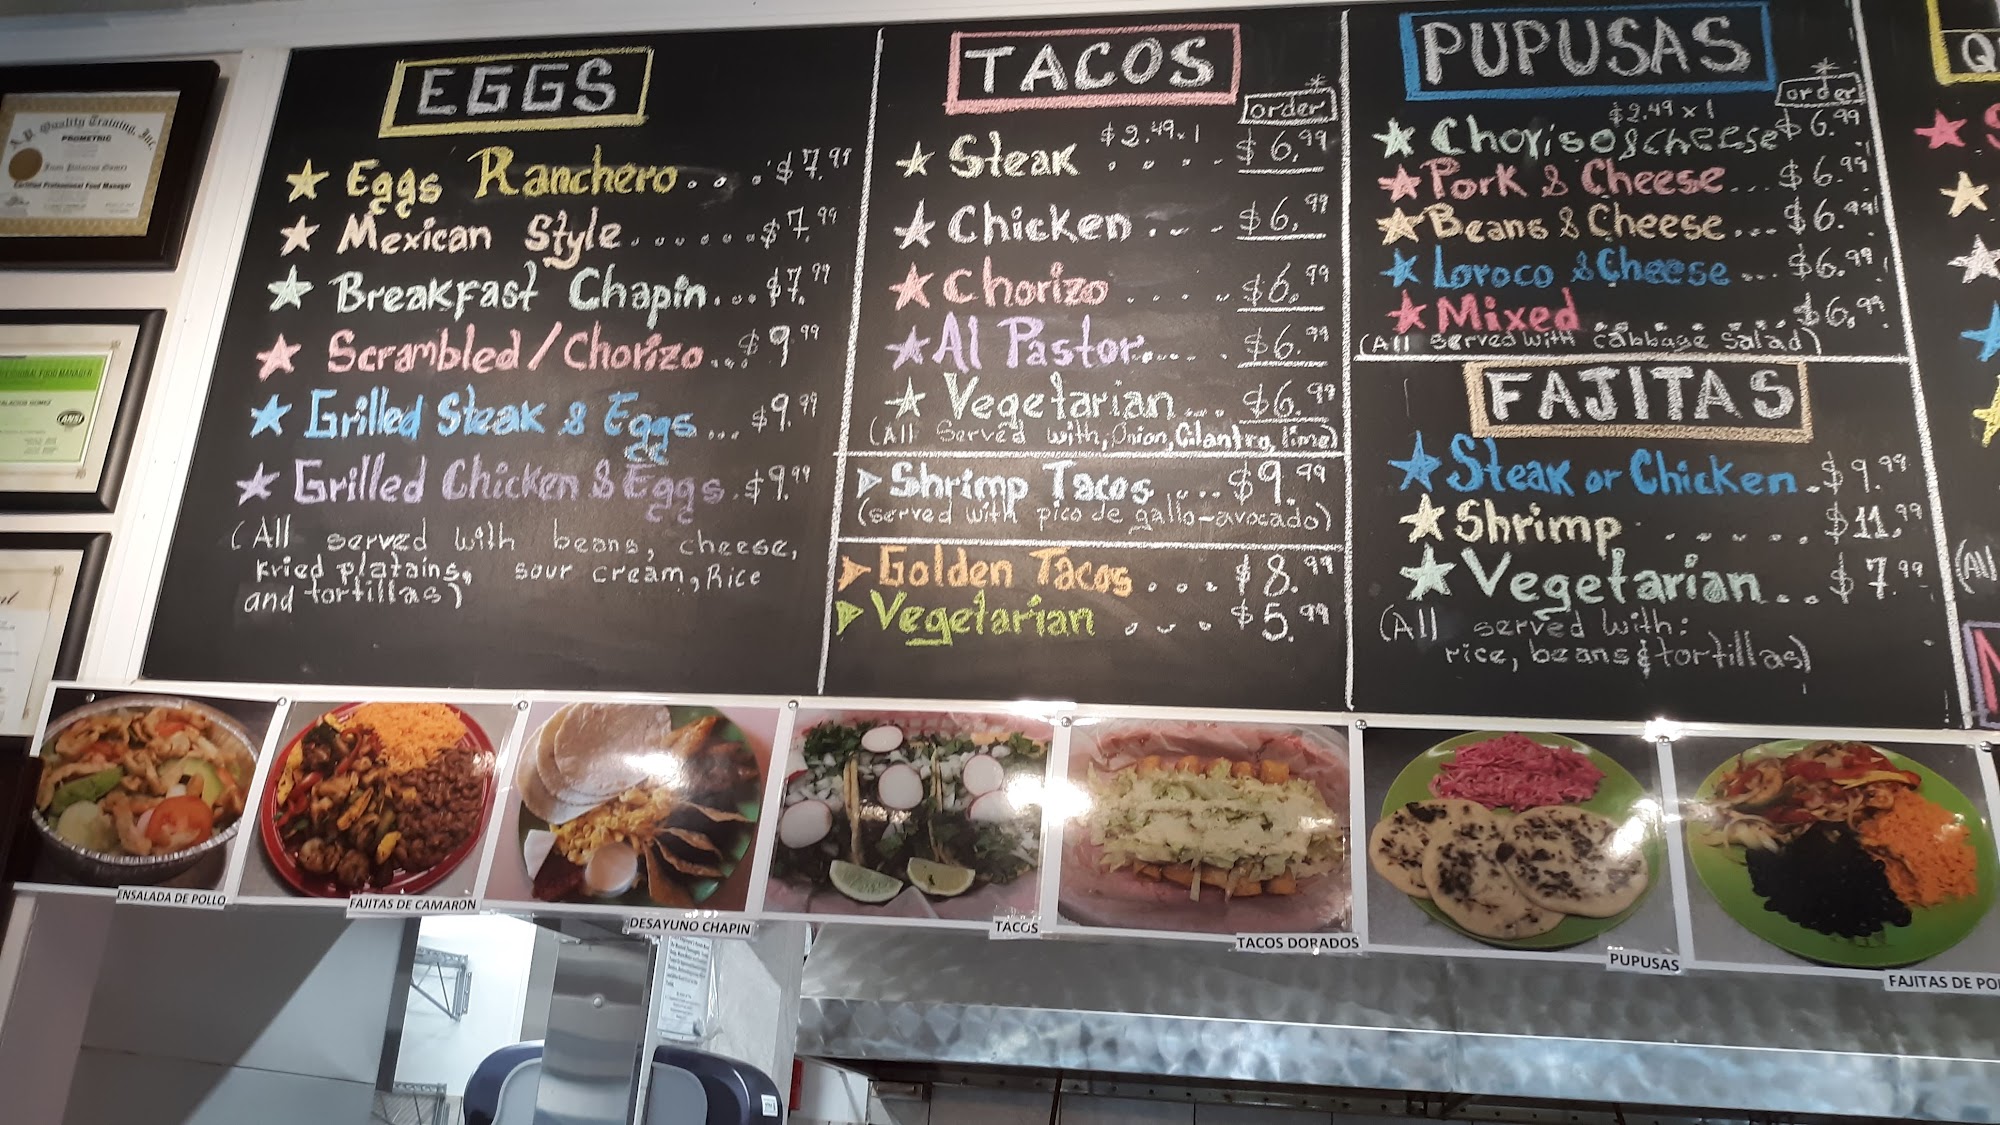 EGGS
Eggs Ranchero... $7.99
Mexican Style....... $7.99
Breakfast Chapin... $7.99
Scrambled/Chorizo... $9.99
Grilled Steak & Eggs... $9.99
Grilled Chicken & Eggs. $9.99
(All served with beans, cheese,
Fried platains, sour cream, Rice
and tortillas)
TACOS
order
Steak $2.49x1 .... $6.99
Chicken... $6.99
Chorizo..... $6.99
Al Pastor..... $6.99
Vegetarian... $6.99
(All served with, Onion, Cilantro, lime)
Shrimp Tacos... $9.99
(served with pico de gallo-avocado)
Golden Tacos... $8.99
Vegetarian .... $5.99
PUPUSAS
order
$2.49x1
Choriso & cheese $6.99
Pork & Cheese... $6.99
Beans & Cheese... $6.99
Loroco & Cheese... $6.99
Mixed ..... $6.99
(All served with cabbage salad)
FAJITAS
Steak or Chicken. $9.99
Shrimp ...... $11.99
Vegetarian... $7.99
(All served with:
rice, beans & tortillas)
(All
A.P. Quality Training, Inc.
PROMETRIC
Certified Professional Food Manager
FOOD MANAGER
ANSI
ENSALADA DE POLLO
FAJITAS DE CAMARON
DESAYUNO CHAPIN
TACOS
TACOS DORADOS
PUPUSAS
FAJITAS DE